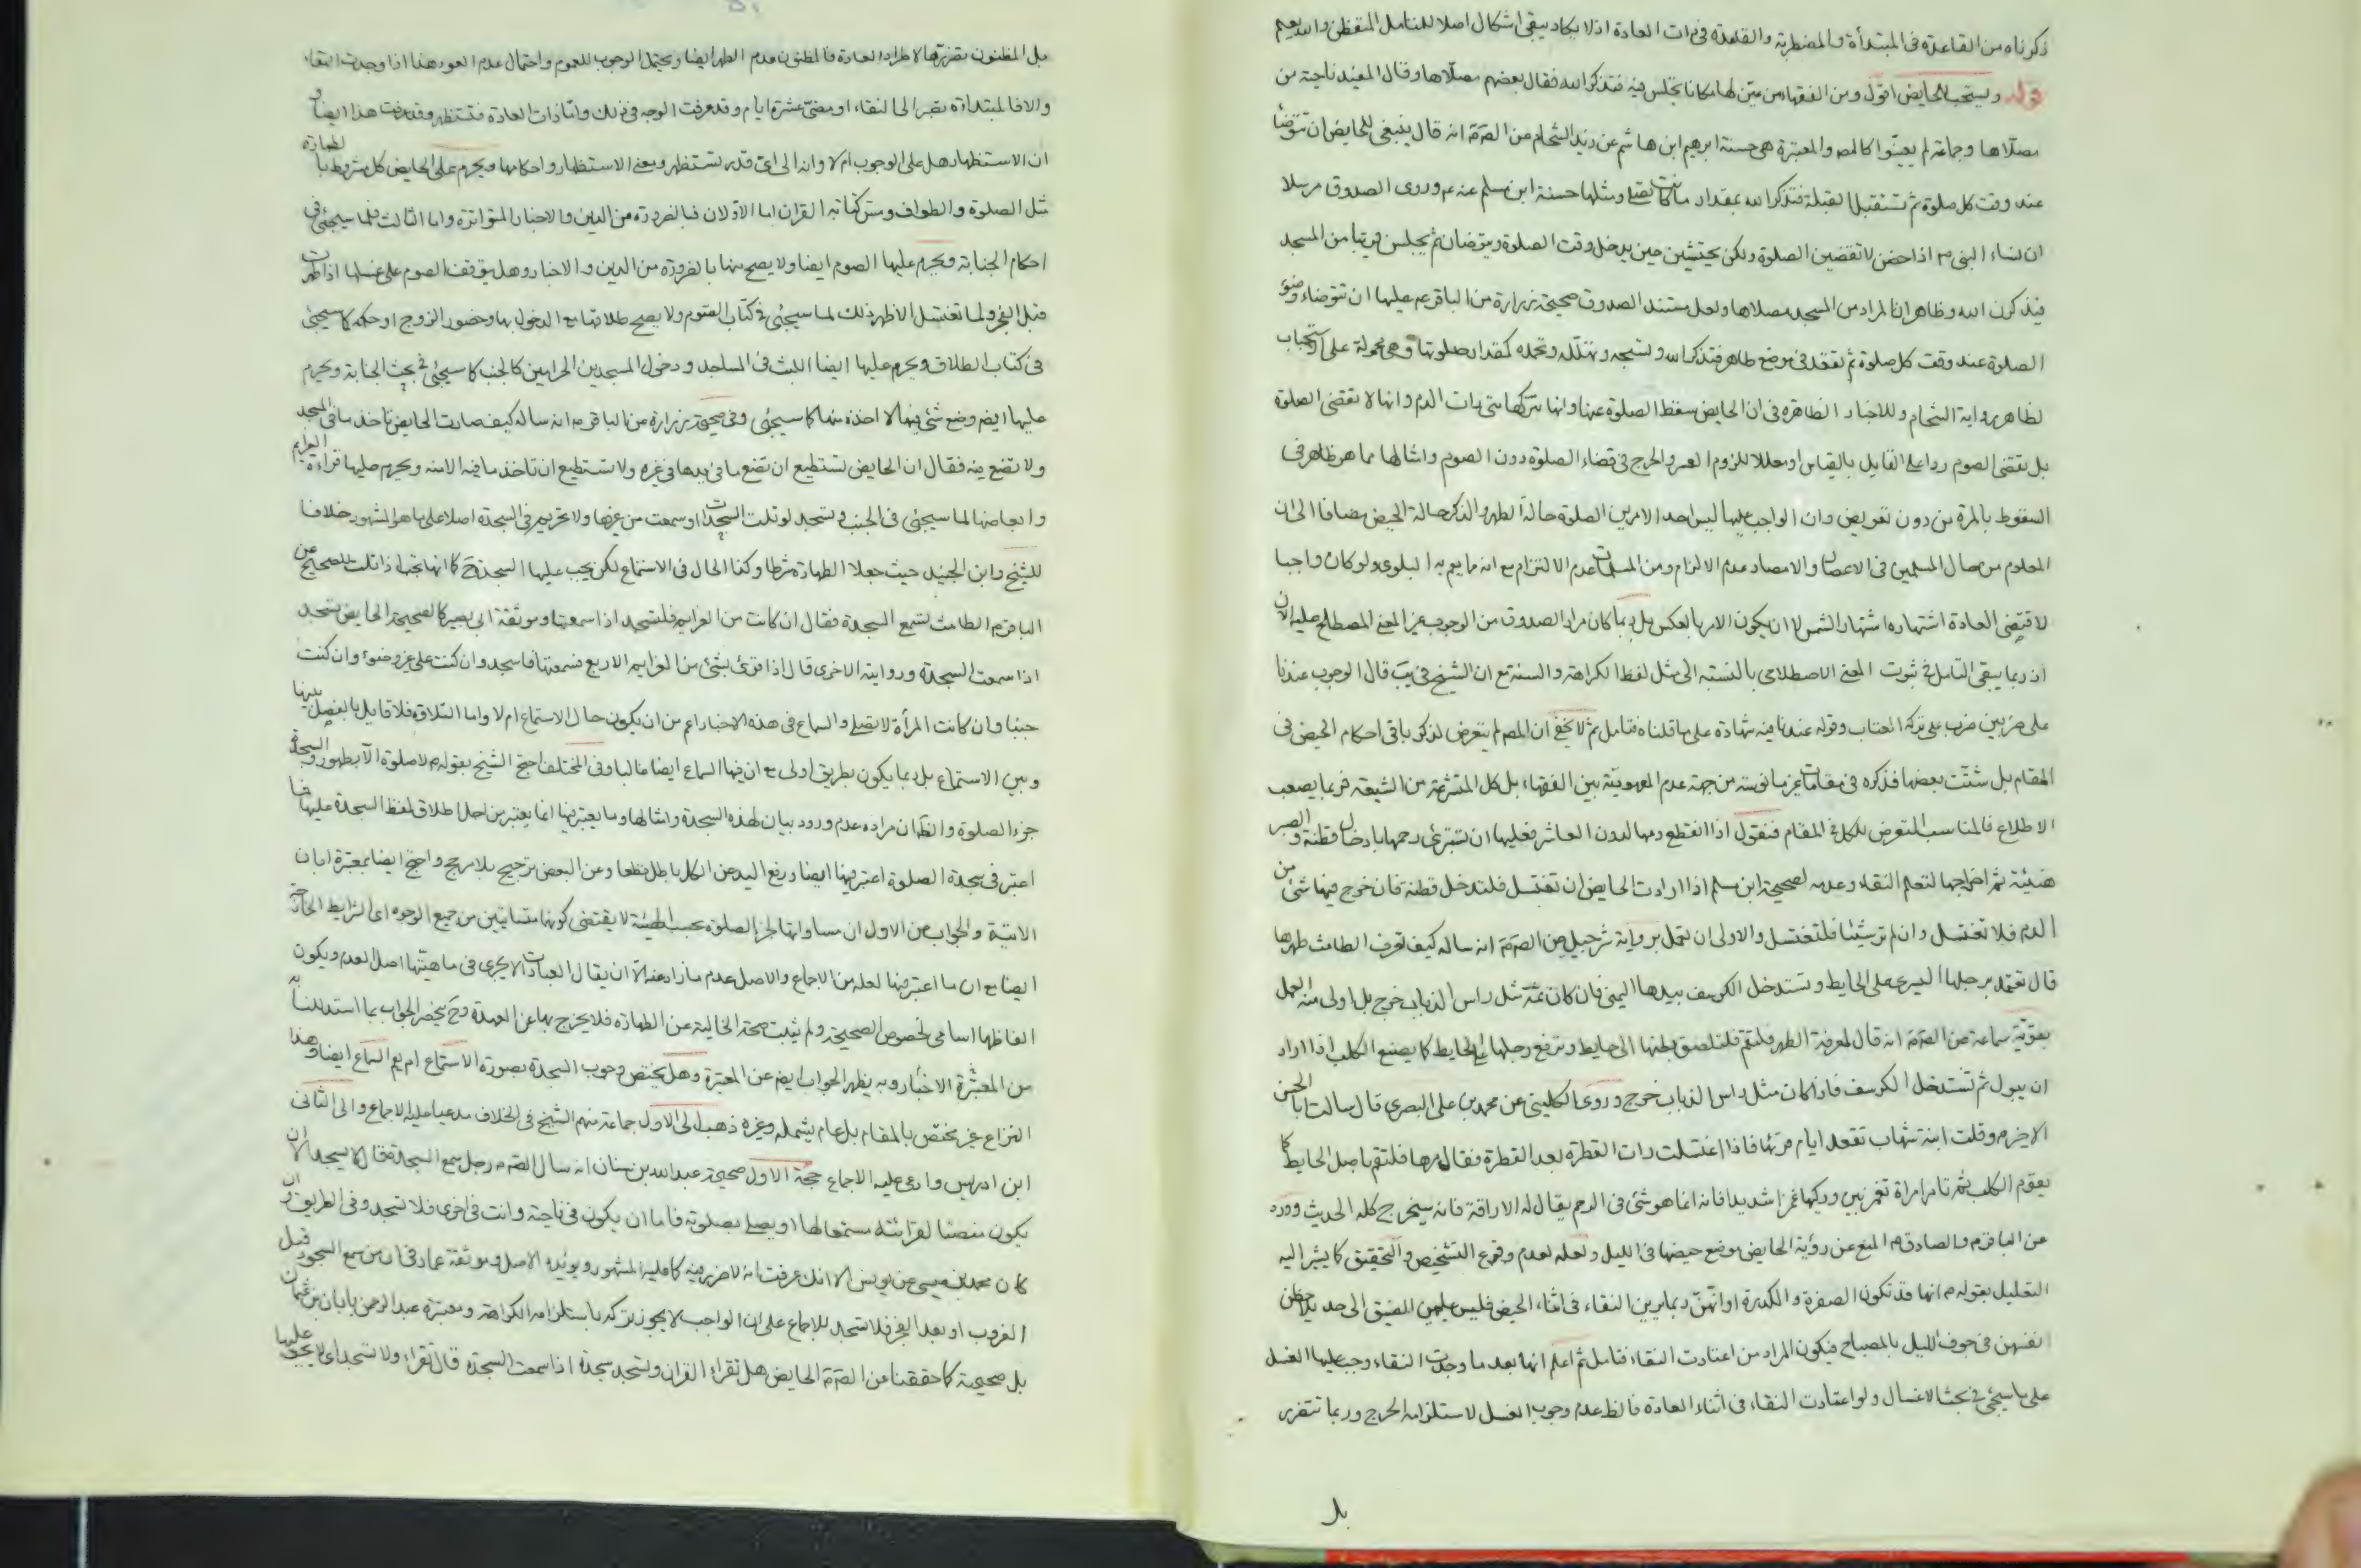 ذكرناه من القاعدة فى المبتدأة والمضطربة والقاعدة فى ذات العادة اذ لا يكاد يبقى اشكال اصلا للمتامل المتفطن والله يعلم
قوله ويستحب للحايض اقول ومن الفقهاء من عين لها مكانا تجلس فيه فتذكر الله فقال بعضهم مصلاها وقال المفيد ناحية من
مصلاها وجماعة لم يعينوا كالمص والمعتبرة هى حسنة ابرهيم ابن هاشم عن زيد الشحام عن الصادق انه قال ينبغى للحايض ان تتوضأ
عند وقت كل صلوة ثم تستقبل القبلة فتذكر الله بمقدار ما كانت تصلى ومثلها حسنة ابن مسلم عنه ع وروى الصدوق مرسلا
ان نساء النبى ص اذا حضن لا تقضين الصلوة ولكن يحتشين حين يدخل وقت الصلوة ويتوضان ثم يجلس قريبا من المسجد
فيذكرن الله وظاهر ان المراد من المسجد مصلاها ولعل مستند الصدوق صحيحة زرارة عن الباقر ع عليها ان تتوضاء وضوء
الصلوة عند وقت كل صلوة ثم تقعد فى موضع طاهر فتذكر الله وتسبحه وتهلله وتحمده كمقدار صلوتها وهى محمولة على استحباب
لظاهر رواية الشحام وللاخبار الظاهرة فى ان الحايض سقط الصلوة عنها وانها تتركها متى رات الدم وانها لا تقضى الصلوة
بل تقضى الصوم ردا على القايل بالقياس او معللا للزوم العسر والحرج فى قضاء الصلوة دون الصوم وامثالها مما هو ظاهر فى
السقوط بالمرة من دون تعويض وان الواجب عليها ليس احد الامرين الصلوة حالة الطهر والذكر حالة الحيض مضافا الى ان
المعلوم من حال المسلمين فى الاعصار والامصار عدم الالزام ومن المسلمات عدم الالتزام مع انه مما يعم به البلوى ولو كان واجبا
لاقتضى العادة اشتهاره اشتهار الشمس لا ان يكون الامر بالعكس بل ربما كان مراد الصدوق من الوجوب غير المعنى المصطلح عليه الان
اذ ربما يبقى التامل فى ثبوت المعنى الاصطلاحى بالنسبة الى مثل لفظ الكراهة والسنة مع ان الشيخ فى يب قال الوجوب عندنا
على ضربين ضرب على تركه العتاب وقوله عندنا فيه شهادة على ما قلناه فتامل ثم لا يخفى ان المص لم يتعرض لذكر باقى احكام الحيض فى
المقام بل شتت بعضها فذكره فى مقامات غير مانوسة من جهة عدم المعهودية بين الفقهاء بل كل المتشرعة من الشيعة فربما يصعب
الاطلاع فالمناسب التعرض للكل فى المقام فنقول اذا انقطع دمها لدون العاشر فعليها ان تستبرئ رحمها بادخال قطنة والصبر
هنيئة ثم اخراجها لتعلم النقاء وعدمه لصحيحة ابن مسلم اذا ارادت الحايض ان تغتسل فلتدخل قطنة فان خرج فيها شئ من
الدم فلا تغتسل وان لم تر شيئا فلتغتسل والاولى ان تعمل برواية شرحبيل عن الصادق انه ساله كيف تعرف الطامث طهرها
قال تعتمد برجلها اليسرى على الحايط وتستدخل الكرسف بيدها اليمنى فان كان ثمة مثل راس الذباب خرج بل اولى منه العمل
بقوية سماعة عن الصادق انه قال لمعرفة الطهر فلتقم فلتلصق بطنها الى حايط وترفع رجلها على الحايط كما يصنع الكلب اذا اراد
ان يبول ثم تستدخل الكرسف فاذا كان مثل راس الذباب خرج وروى الكلينى عن محمد بن على البصرى قال سالت ابا الحسن
الاخير ع وقلت ابنة شهاب تقعد ايام قرئها فاذا اغتسلت رات القطرة بعد القطرة فقال مرها فلتقم باصل الحايط كما
يقوم الكلب ثم تامر امراة تغمز بين وركيها غمزا شديدا فانه انما هو شئ فى الرحم يقال له الاراقة فانه سيخرج كله الحديث وورد
عن الباقر ع والصادق ع المنع عن رؤية الحايض موضع حيضها فى الليل ولعله لعدم وقوع التشخيص والتحقيق كما يشير اليه
التعليل بقوله ع انها قد تكون الصفرة والكدرة او انهن ربما يرين النقاء فى اثناء الحيض فليس عليهن الضيق الى حد يلاحظن
انفسهن فى جوف الليل بالمصباح فيكون المراد من اعتادت النقاء فتامل ثم اعلم انها بعد ما وجدت النقاء وجب عليها الغسل
على ما سيجئ فى بحث الاغسال ولو اعتادت النقاء فى اثناء العادة فالظ عدم وجوب الغسل لاستلزامه الحرج وربما تتضرر
بل
بل المظنون تضررها لاطراد العادة فالمظنون عدم الطهر ايضا ويحتمل الوجوب للعموم واحتمال عدم العود هذا اذا وجدت النقاء
والا فالمبتداة تصبر الى النقاء او مضى عشرة ايام وقد عرفت الوجه فى ذلك واما ذات العادة فتستظهر وقد عرفت هذا ايضا و
ان الاستظهار هل على الوجوب ام لا وانه الى اى قدر تستظهر ومعنى الاستظهار واحكامها ويحرم على الحايض كل مشروط بالطهارة
مثل الصلوة والطواف ومس كتابة القران اما الاولان فبالضرورة من الدين والاخبار المتواترة واما الثالث فلما سيجئ فى
احكام الجنابة ويحرم عليها الصوم ايضا ولا يصح منها بالضرورة من الدين والاخبار وهل يتوقف الصوم على غسلها اذا طهرت
قبل الفجر ولما تغتسل الاظهر ذلك لما سيجئ فى كتاب الصوم ولا يصح طلاقها مع الدخول بها وحضور الزوج او حكمه كما سيجئ
فى كتاب الطلاق ويحرم عليها ايضا اللبث فى المساجد ودخول المسجدين الحرامين كالجنب كما سيجئ فى بحث الجنابة ويحرم
عليها ايضا وضع شئ فيها لا اخذه منها كما سيجئ وفى صحيحة زرارة عن الباقر ع انه ساله كيف صارت الحايض تاخذ ما فى المسجد
ولا تضع فيه فقال ان الحايض تستطيع ان تضع ما فى يدها فى غيره ولا تستطيع ان تاخذ ما فيه الا منه ويحرم عليها قراءة العزايم
وابعاضها لما سيجئ فى الجنب وتسجد لو تلت السجدات او سمعت من غيرها ولا تحريم فى السجدة اصلا على ما هو المشهور خلافا
للشيخ وابن الجنيد حيث جعلا الطهارة شرطا وكذا الحال فى الاستماع لكن يجب عليها السجدة ح كما انها تجب اذا تلت للصحيح عن
الباقر ع الطامث تسمع السجدة فقال ان كانت من العزايم فلتسجد اذا سمعتها وموثقة ابى بصير كالصحيحة الحايض تسجد
اذا سمعت السجدة وروايته الاخرى قال اذا قرئ بشئ من العزايم الاربع فسمعتها فاسجد وان كنت على غير وضوء وان كنت
جنبا وان كانت المرأة لا تصلى والسماع فى هذه الاخبار اعم من ان يكون حال الاستماع ام لا واما التلاوة فلا قايل بالفصل بينها
وبين الاستماع بل ربما يكون بطريق اولى مع ان فيها السماع ايضا غالبا وفى المختلف احتج الشيخ بقوله ع لا صلوة الا بطهور والسجدة
جزء الصلوة والظ ان مراده عدم ورود بيان لهذه السجدة وامثالها وما يعتبر فيها انما يعتبر من اجل اطلاق لفظ السجدة عليها فما
اعتبر فى سجدة الصلوة اعتبر فيها ايضا ورفع اليد عن الكل باطل قطعا وعن البعض ترجيح بلا مرجح واحتج ايضا بمعتبرة ابان
الاتية والجواب عن الاول ان مساواتها لجزء الصلوة بحسب الهيئة لا يقتضى كونهما متساويين من جميع الوجوه اى الشرايط الخارجة
ايضا مع ان ما اعتبر فيها لعله من الاجماع والاصل عدم ما زاد عنه الا ان يقال العبادات لا يجرى فى ماهيتها اصل العدم ويكون
الفاظها اسامى لخصوص الصحيحة ولم يثبت صحة الخالية عن الطهارة فلا يخرج بها عن العهدة وح ينحصر الجواب بما استدللنا به
من المعتبرة الاخبار وبه يظهر الجواب ايضا عن المعتبرة وهل يختص وجوب السجدة بصورة الاستماع ام يعم السماع ايضا وهذا
النزاع غير مختص بالمقام بل عام يشمله وغيره ذهب الى الاول جماعة منهم الشيخ فى الخلاف مدعيا عليه الاجماع والى الثانى
ابن ادريس وادعى عليه الاجماع حجة الاول صحيحة عبدالله بن سنان انه سال الصادق ع رجل سمع السجدة فقال لا يسجد الا ان
يكون منصتا لقرائته مستمعا لها او يصلى بصلوته فاما ان يكون فى ناحية وانت فى اخرى فلا تسجد وفى الطريق وان
كان محمد بن عيسى عن يونس الا انك عرفت انه لا ضرر فيه كما عليه المشهور ويؤيده الاصل وموثقة عمار فى ان من سمع السجود قبل
الغروب او بعد الفجر فلا تسجد للاجماع على ان الواجب لا يجوز تركه باستلزامه الكراهة ومعتبرة عبد الرحمن بابان بن عثمان
بل صحيحة كما حققنا عن الصادق الحايض هل تقراء القران وتسجد سجدة اذا سمعت السجدة قال تقراء ولا تسجد اى لا يجب عليها